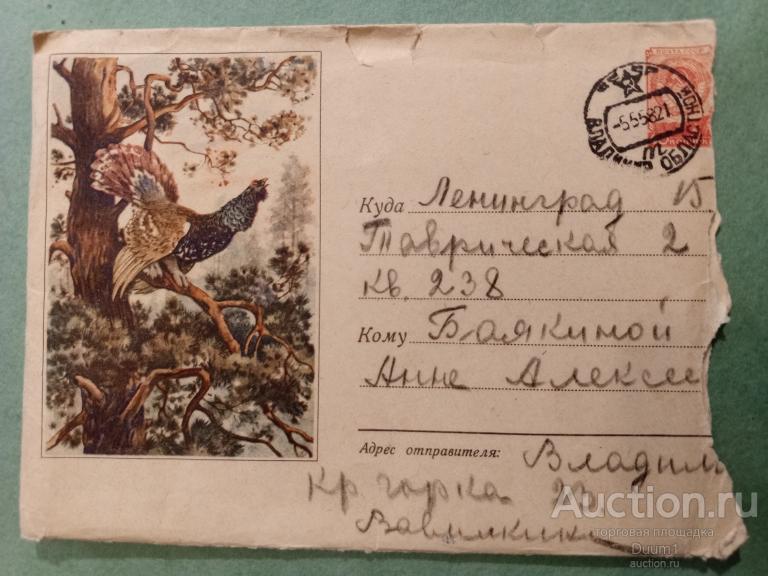 ПОЧТА СССР
-5.5.58 21
ВЛАДИМИР ОБЛАСТНОЙ
Куда Ленинград 15
Таврическая 2
кв. 238
Кому Баякиной
Анне Алексе
Адрес отправителя: Владим
Кр горка
Auction.ru
торговая площадка
Duum1
auction.ru